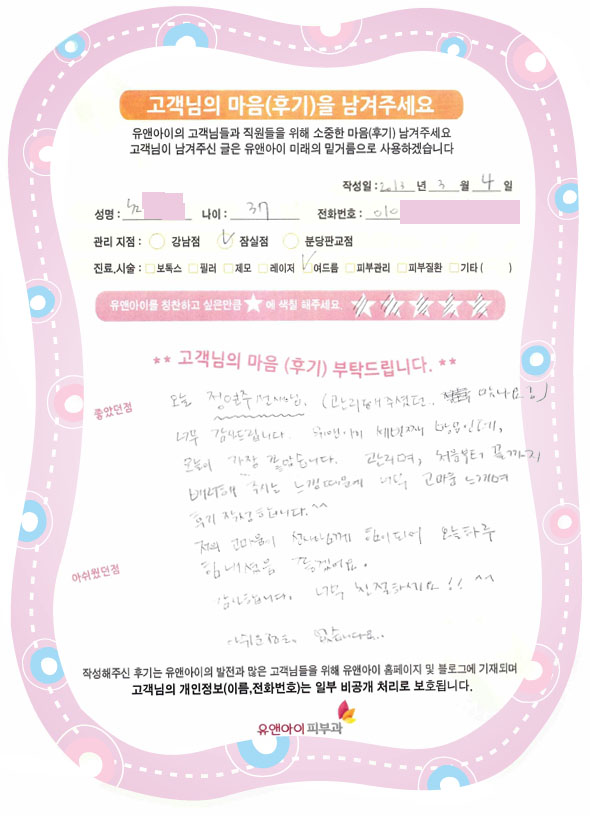 고객님의 마음(후기)을 남겨주세요
유앤아이의 고객님들과 직원들을 위해 소중한 마음(후기) 남겨주세요
고객님이 남겨주신 글은 유앤아이 미래의 밑거름으로 사용하겠습니다
작성일 : 2013 년 3 월 4 일
성명 : 노 나이 : 37 전화번호 : 010
관리 지점 : 강남점 잠실점 분당판교점
진료,시술 : 보톡스 필러 제모 레이저 여드름 피부관리 피부질환 기타 ( )
유앤아이를 칭찬하고 싶은만큼 ★ 에 색칠 해주세요
** 고객님의 마음 (후기) 부탁드립니다. **
좋았던점
오늘 정연주 선생님. (관리해 주셨던
너무 감사드립니다. 유앤아이 세번째 방문인데,
오늘이 가장 좋았습니다. 관리며, 처음부터 끝까지
배려해 주시는 느낌때문에 너무 고마움 느끼며
후기 작성합니다.^^
저의 고마움이 선생님께 힘이되어 오늘하루
아쉬웠던점
힘내셨음 좋겠어요.
감사합니다. 너무 친절하세요!! ^^
아쉬운점은 없습니다..
작성해주신 후기는 유앤아이의 발전과 많은 고객님들을 위해 유앤아이 홈페이지 및 블로그에 기재되며
고객님의 개인정보(이름,전화번호)는 일부 비공개 처리로 보호됩니다.
유앤아이피부과